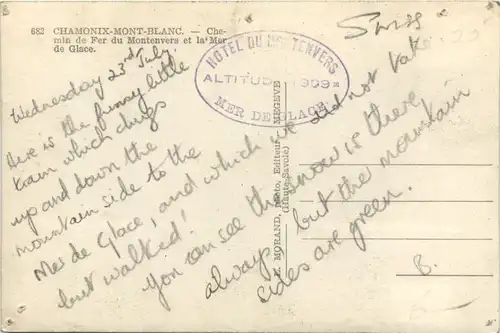 682 CHAMONIX-MONT-BLANC. — Che-
min de Fer du Montenvers et la Mer
de Glace.
Swiss
HÔTEL DU MONTENVERS
ALTITUDE 1909m
MER DE GLACE
Wednesday 23rd July.
Here is the funny little
train which chugs
up and down the
mountain side to the
Mer de Glace, and which we did not take
but walked!
You can see the snow is there
always but the mountain
sides are green.
E. MORAND, Photo, Editeur, MEGÈVE
(Haute-Savoie)
B.